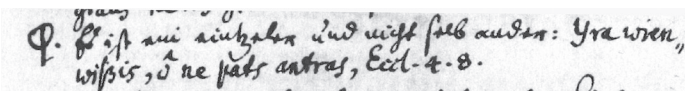 Q. Es ist ein eintzeler und nicht selb ander: Yra wien„
wißis, o ne pats antras, Eccl. 4. 8.